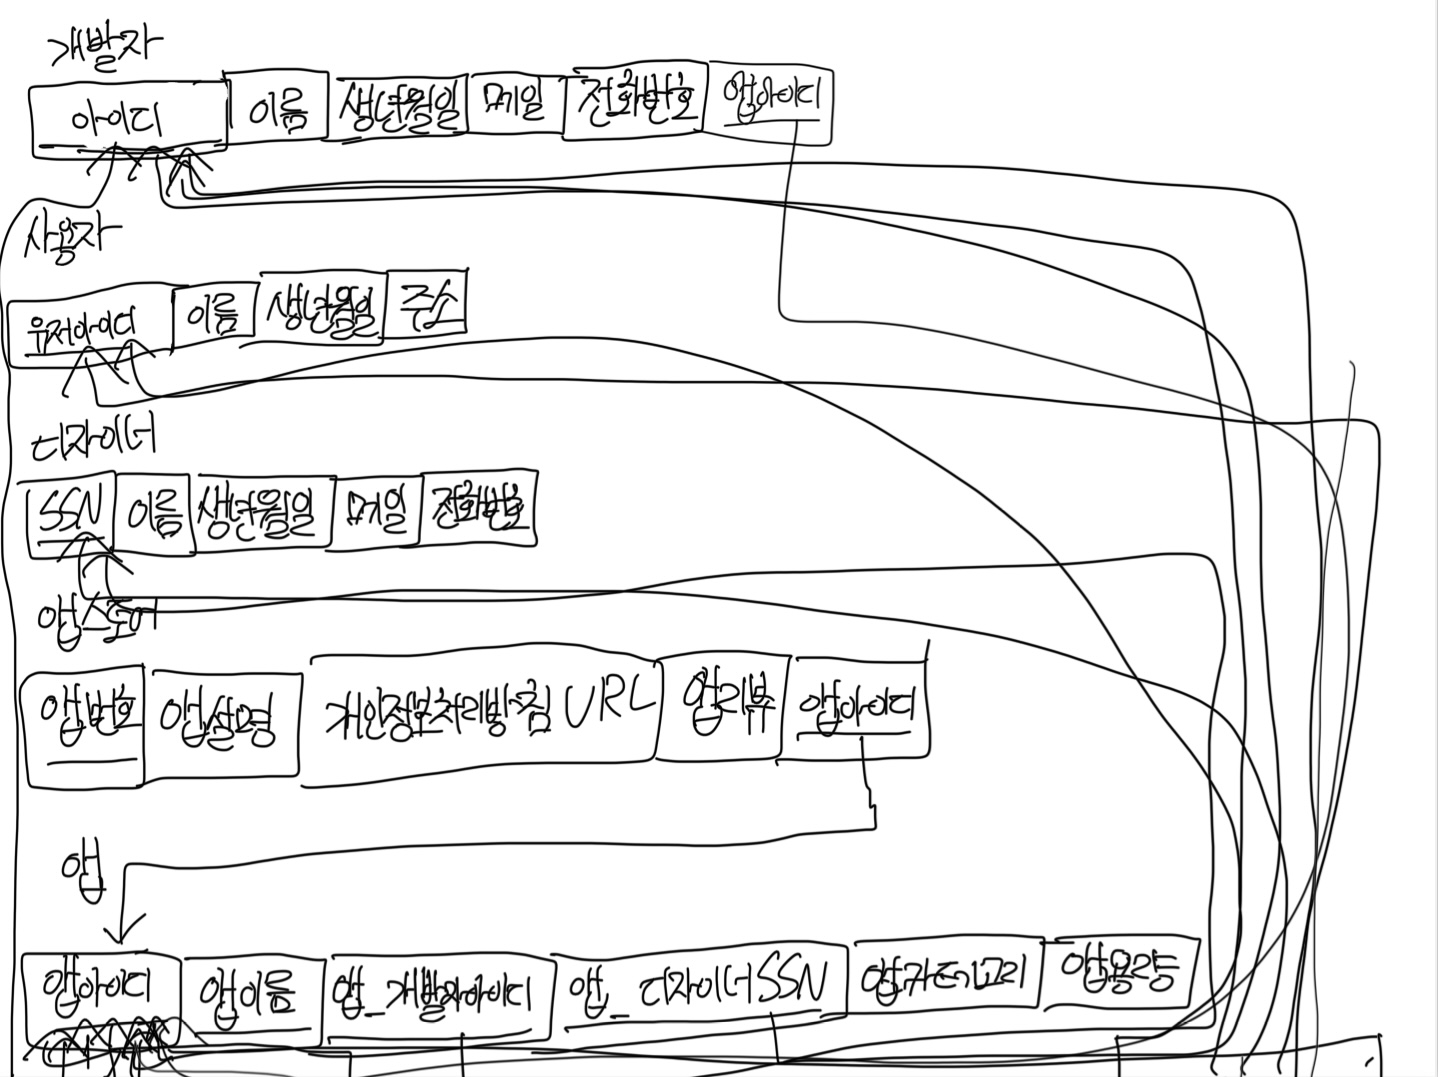 개발자
아이디 이름 생년월일 메일 전화번호 앱아이디
사용자
유저아이디 이름 생년월일 주소
디자이너
SSN 이름 생년월일 메일 전화번호
앱스토어
앱번호 앱설명 개인정보처리방침 URL 앱리뷰 앱아이디
앱
앱아이디 앱이름 앱_개발자아이디 앱_디자이너SSN 앱카테고리 앱용량